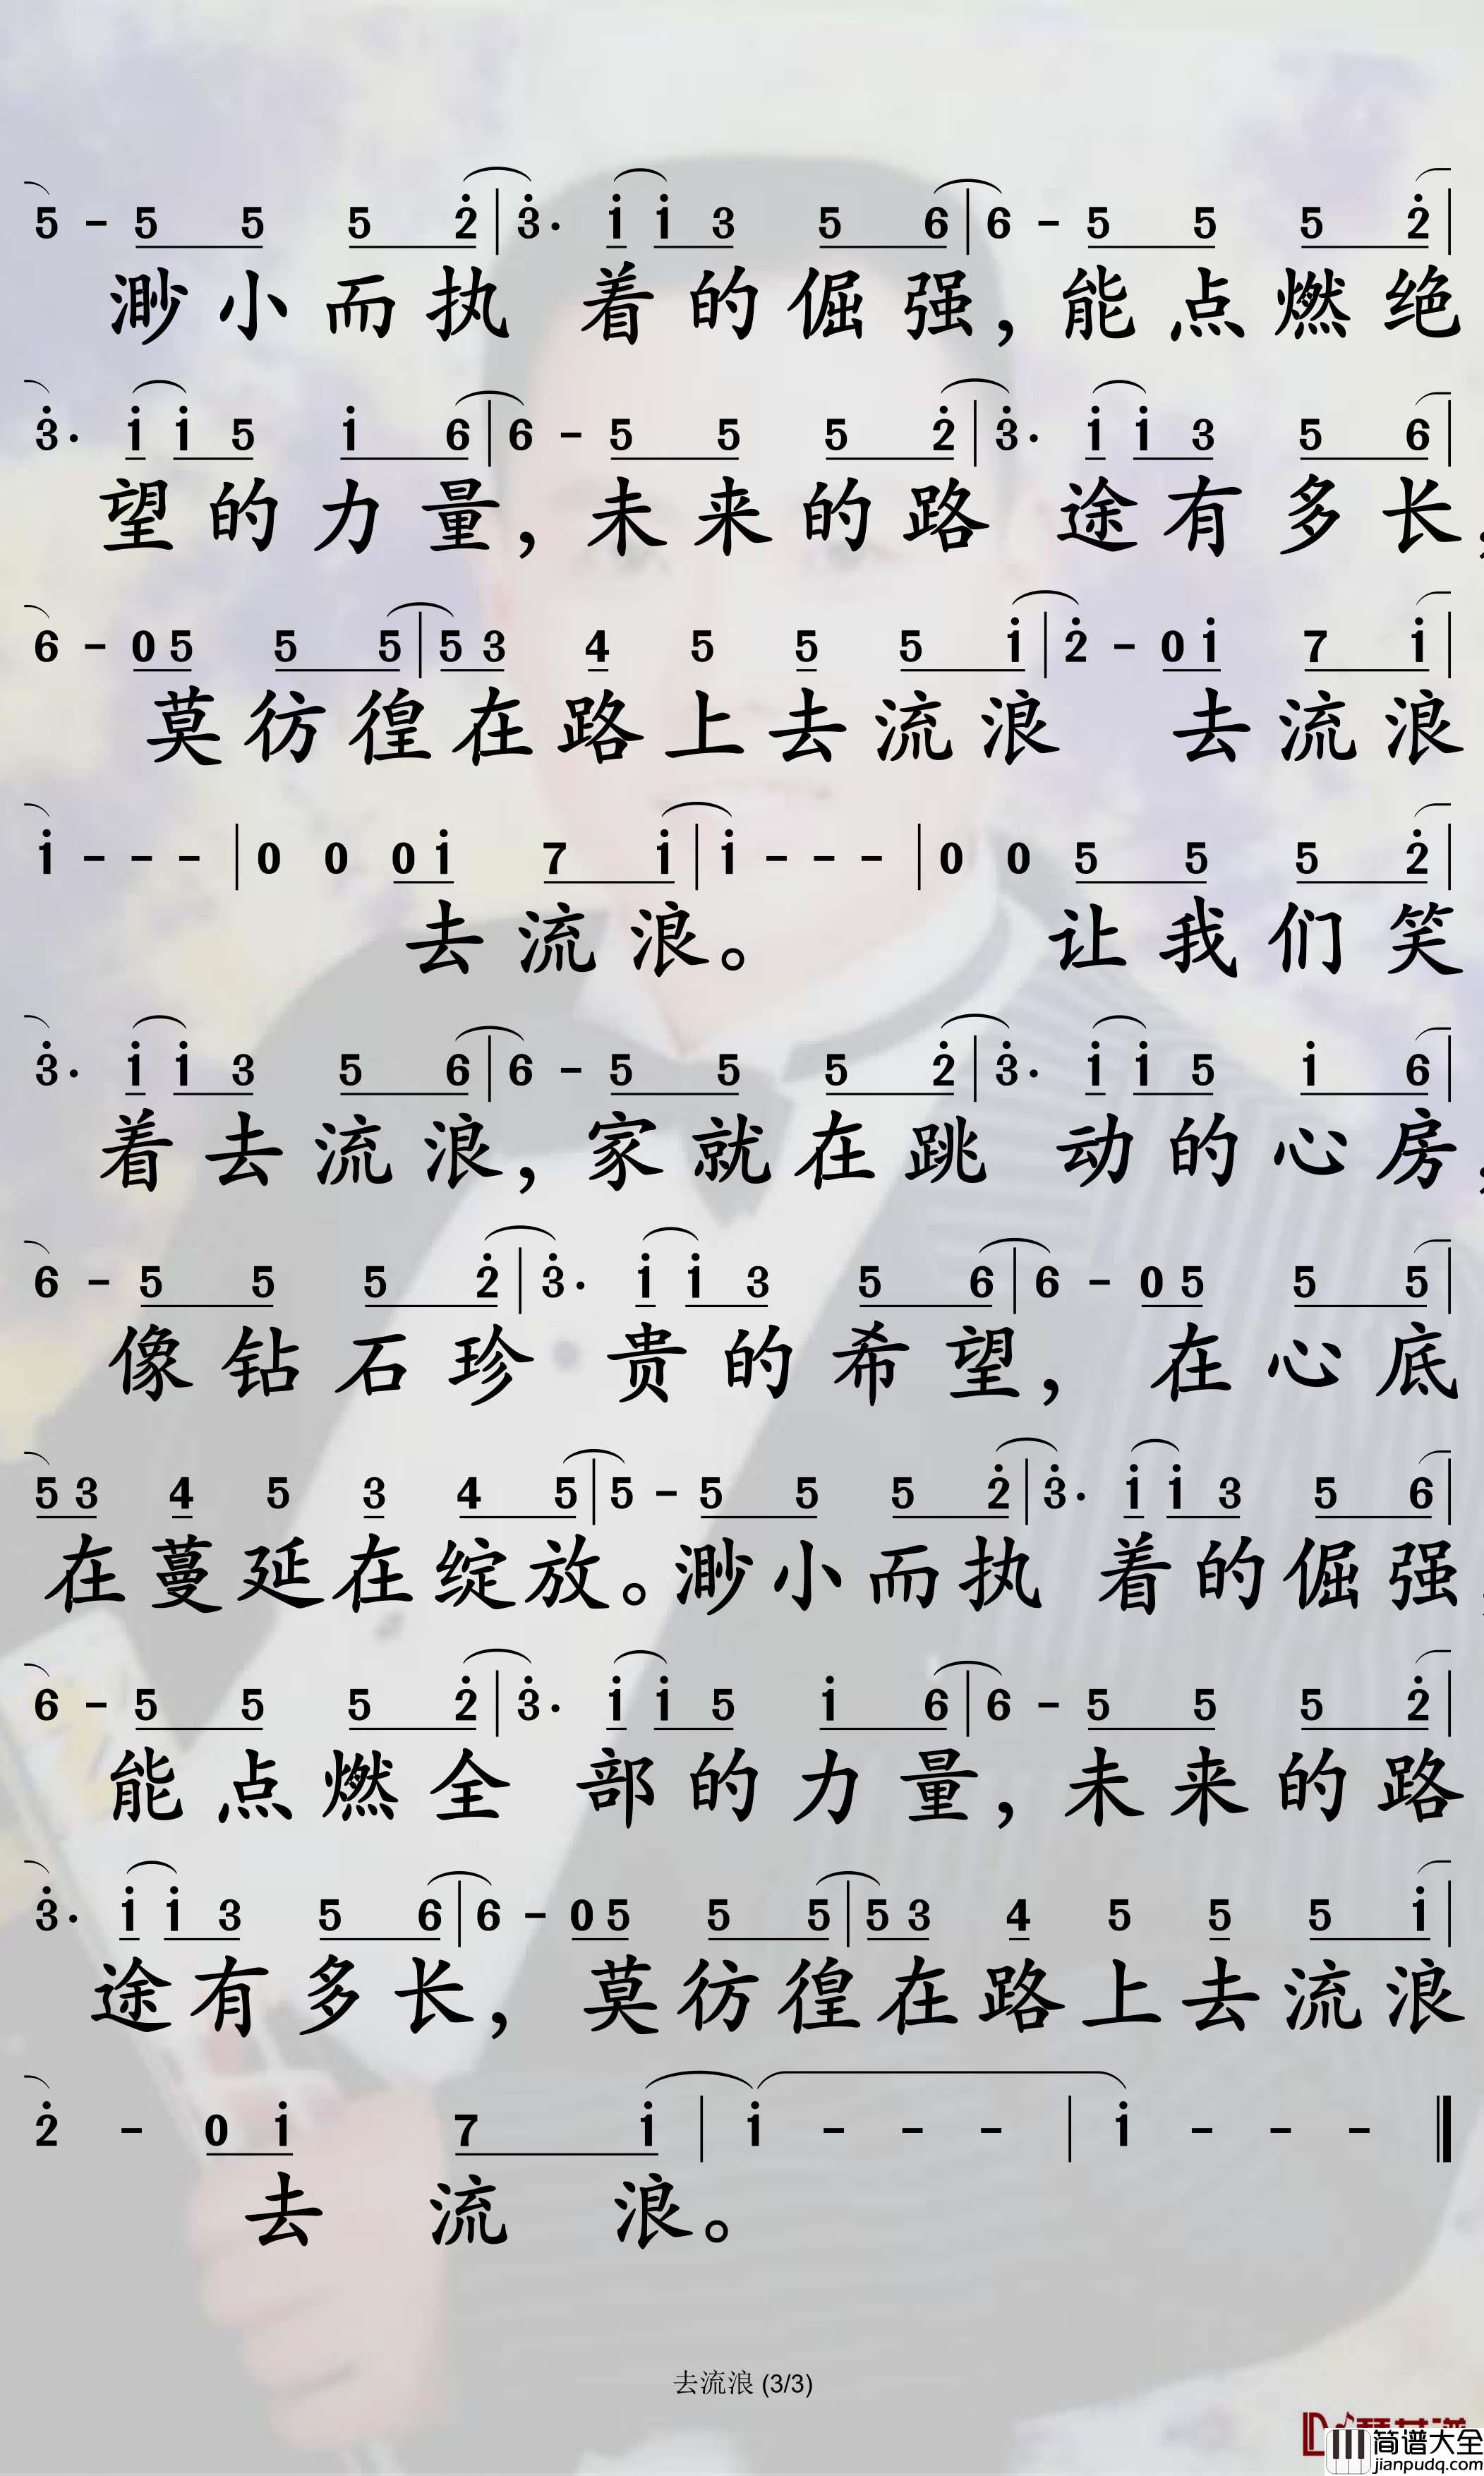 5 - 5 5 5 2̇ | 3̇· 1̇ 1̇ 3 5 6 | 6 - 5 5 5 2̇ |
渺小而执 着的倔强，能点燃绝
3̇· 1̇ 1̇ 5 1̇ 6 | 6 - 5 5 5 2̇ | 3̇· 1̇ 1̇ 3 5 6 |
望的力量，未来的路 途有多长，
6 - 0 5 5 5 | 5 3 4 5 5 5 1̇ | 2̇ - 0 1̇ 7 1̇ |
莫彷徨在路上去流浪 去流浪
1̇ - - - | 0 0 0 1̇ 7 1̇ | 1̇ - - - | 0 0 5 5 5 2̇ |
去流浪。 让我们笑
3̇· 1̇ 1̇ 3 5 6 | 6 - 5 5 5 2̇ | 3̇· 1̇ 1̇ 5 1̇ 6 |
着去流浪，家就在跳 动的心房，
6 - 5 5 5 2̇ | 3̇· 1̇ 1̇ 3 5 6 | 6 - 0 5 5 5 |
像钻石珍 贵的希望，在心底
5 3 4 5 3 4 5 | 5 - 5 5 5 2̇ | 3̇· 1̇ 1̇ 3 5 6 |
在蔓延在绽放。渺小而执 着的倔强，
6 - 5 5 5 2̇ | 3̇· 1̇ 1̇ 5 1̇ 6 | 6 - 5 5 5 2̇ |
能点燃全 部的力量，未来的路
3̇· 1̇ 1̇ 3 5 6 | 6 - 0 5 5 5 | 5 3 4 5 5 5 1̇ |
途有多长，莫彷徨在路上去流浪
2̇ - 0 1̇ 7 1̇ | 1̇ - - - | 1̇ - - - ‖
去 流 浪。
去流浪 (3/3)
简谱大全
jianpudq.com